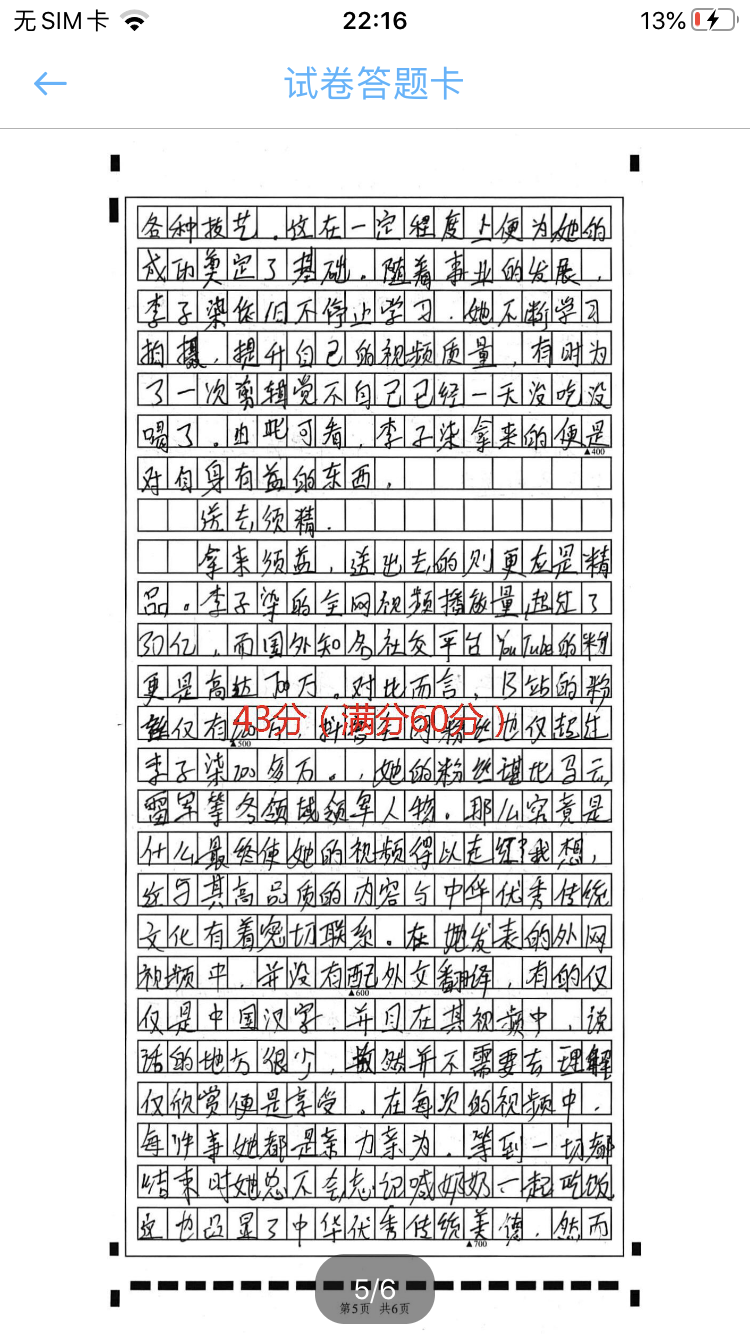 无SIM卡 22:16 13%
试卷答题卡
各种技艺.这在一定程度上便为她的
成功奠定了基础。随着事业的发展,
李子柒依旧不停止学习.她不断学习
拍摄,提升自己的视频质量,有时为
了一次剪辑觉不自己已经一天没吃没
喝了。由此可看,李子柒拿来的便是
▲400
对自身有益的东西.
送去须精.
拿来须益,送出去的则更应是精
品。李子柒的全网视频播放量超过了
30亿,而国外知名社交平台YouTube的粉
更是高达700万。对比而言,B站的粉
丝仅有 万, 粉丝也仅超过
43分(满分60分)
▲500
李子柒 多万。,她的粉丝堪比马云,
雷军等各领域领军人物。那么究竟是
什么最终使她的视频得以走红?我想,
这与其高品质的内容与中华优秀传统
文化有着密切联系。在她发表的外网
视频中,并没有配外文翻译,有的仅
▲600
仅是中国汉字.并且在其视频中,说
话的地方很少, 然并不需要去理解
仅欣赏便是享受。在每次的视频中.
每件事她都是亲力亲为.等到一切都
结束时她总不会忘记喊奶奶一起吃饭
这也凸显了中华优秀传统美德.然而
▲700
5/6
第5页 共6页